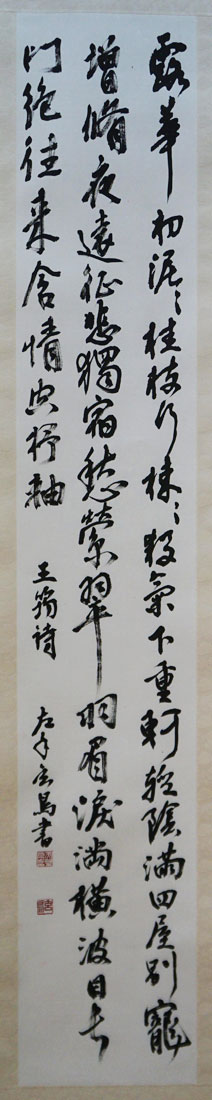 露華初泥〻桂枝行棟〻殺氣下重軒輕陰滿四屋別寵
增脩夜遠征悲獨宿愁縈翠羽眉淚滿橫波目長
門絕往來含情空杼軸
王筠詩
左手 書